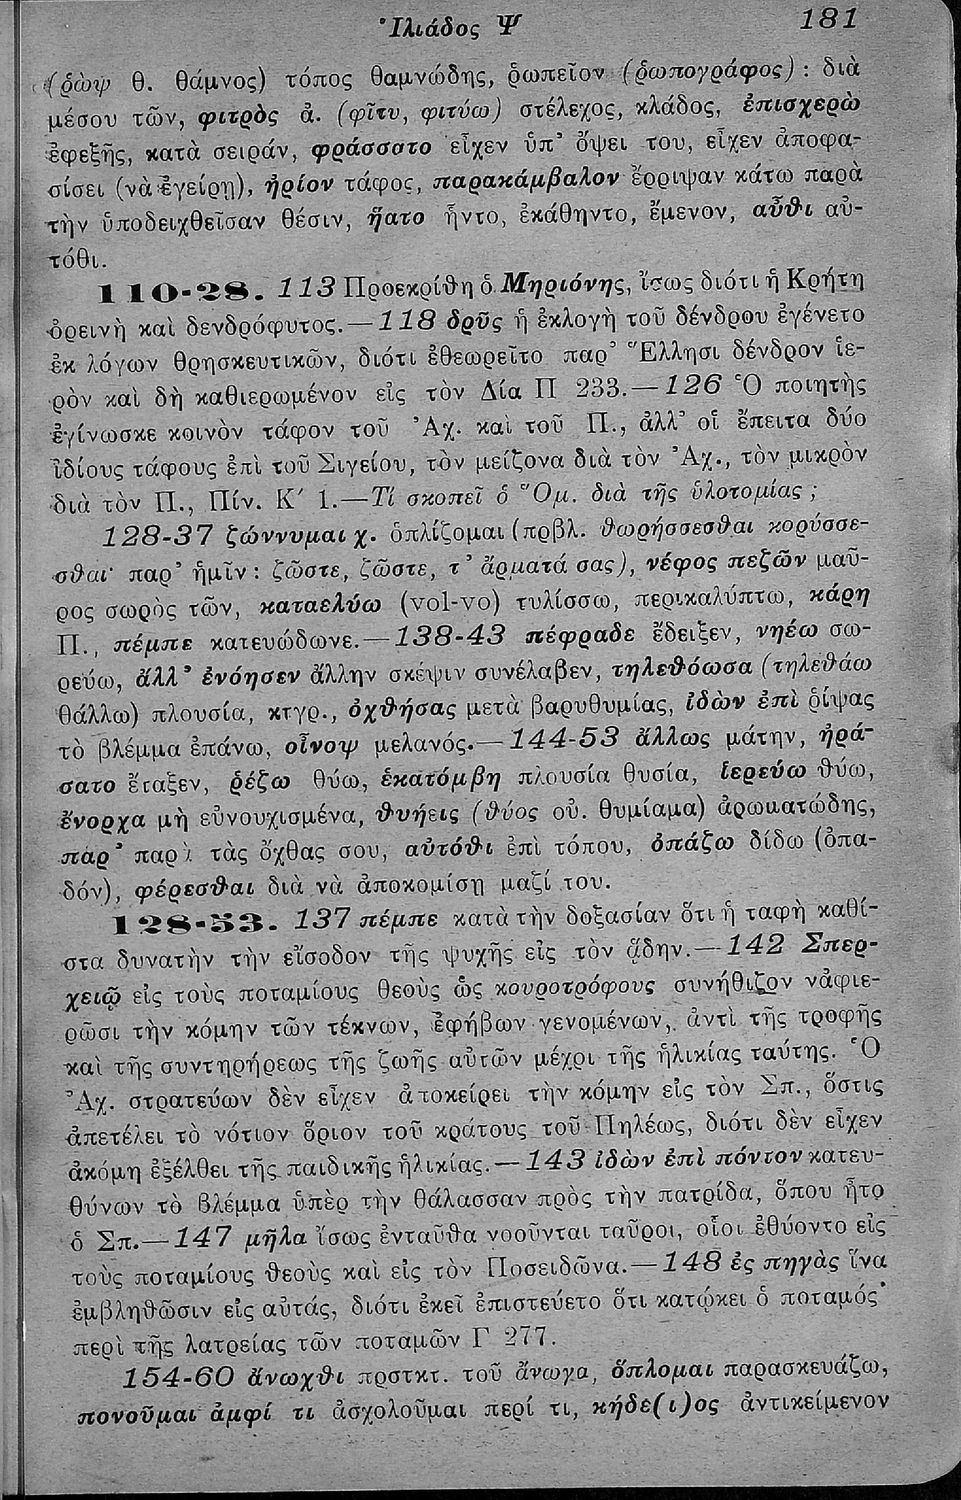 Ἰλιάδος Ψ 181
(ῥὼψ θ. θάμνος) τόπος θαμνώδης, ῥωπεῖον (ῥωπογράφος) : διὰ
μέσου τῶν, φιτρὸς ἀ. (φῖτυ, φιτύω) στέλεχος, κλάδος, ἐπισχερὼ
ἐφεξῆς, κατὰ σειράν, φράσσατο εἶχεν ὑπ' ὄψει του, εἶχεν ἀποφα-
σίσει (νὰ ἐγείρῃ), ἠρίον τάφος, παρακάμβαλον ἔρριψαν κάτω παρὰ
τὴν ὑποδειχθεῖσαν θέσιν, ἥατο ἧντο, ἐκάθηντο, ἔμενον, αὖθι αὐ-
τόθι.
110-28. 113 Προεκρίθη ὁ Μηριόνης, ἴσως διότι ἡ Κρήτη
ὀρεινὴ καὶ δενδρόφυτος.—118 δρῦς ἡ ἐκλογὴ τοῦ δένδρου ἐγένετο
ἐκ λόγων θρησκευτικῶν, διότι ἐθεωρεῖτο παρ' Ἕλλησι δένδρον ἱε-
ρὸν καὶ δὴ καθιερωμένον εἰς τὸν Δία Π 233.—126 Ὁ ποιητὴς
ἐγίνωσκε κοινὸν τάφον τοῦ Ἀχ. καὶ τοῦ Π., ἀλλ' οἱ ἔπειτα δύο
ἰδίους τάφους ἐπὶ τοῦ Σιγείου, τὸν μείζονα διὰ τὸν Ἀχ., τὸν μικρὸν
διὰ τὸν Π., Πίν. Κ' 1.—Τί σκοπεῖ ὁ Ὅμ. διὰ τῆς ὑλοτομίας ;
128-37 ζώννυμαι χ. ὁπλίζομαι (πρβλ. θωρήσσεσθαι κορύσσε-
σθαι· παρ' ἡμῖν : ζῶστε, ζῶστε, τ' ἄρματά σας), νέφος πεζῶν μαῦ-
ρος σωρὸς τῶν, καταελύω (vol-vo) τυλίσσω, περικαλύπτω, κάρη
Π., πέμπε κατευώδωνε.—138-43 πέφραδε ἔδειξεν, νηέω σω-
ρεύω, ἄλλ' ἐνόησεν ἄλλην σκέψιν συνέλαβεν, τηλεθόωσα (τηλεθάω
θάλλω) πλουσία, κτγρ., ὀχθήσας μετὰ βαρυθυμίας, ἰδὼν ἐπὶ ῥίψας
τὸ βλέμμα ἐπάνω, οἶνοψ μελανός.—144-53 ἄλλως μάτην, ἠρά-
σατο ἔταξεν, ῥέζω θύω, ἑκατόμβη πλουσία θυσία, ἱερεύω θύω,
ἔνορχα μὴ εὐνουχισμένα, θυήεις (θύος οὐ. θυμίαμα) ἀρωματώδης,
πὰρ' παρὰ τὰς ὄχθας σου, αὐτόθι ἐπὶ τόπου, ὀπάζω δίδω (ὀπα-
δόν), φέρεσθαι διὰ νὰ ἀποκομίσῃ μαζί του.
128-53. 137 πέμπε κατὰ τὴν δοξασίαν ὅτι ἡ ταφὴ καθί-
στα δυνατὴν τὴν εἴσοδον τῆς ψυχῆς εἰς τὸν ᾅδην.—142 Σπερ-
χειῷ εἰς τοὺς ποταμίους θεοὺς ὡς κουροτρόφους συνήθιζον ν' ἀφιε-
ρῶσι τὴν κόμην τῶν τέκνων, ἐφήβων γενομένων, ἀντὶ τῆς τροφῆς
καὶ τῆς συντηρήρεως τῆς ζωῆς αὐτῶν μέχρι τῆς ἡλικίας ταύτης. Ὁ
Ἀχ. στρατεύων δὲν εἶχεν ἀποκείρει τὴν κόμην εἰς τὸν Σπ., ὅστις
ἀπετέλει τὸ νότιον ὅριον τοῦ κράτους τοῦ Πηλέως, διότι δὲν εἶχεν
ἀκόμη ἐξέλθει τῆς παιδικῆς ἡλικίας.—143 ἰδὼν ἐπὶ πόντον κατευ-
θύνων τὸ βλέμμα ὑπὲρ τὴν θάλασσαν πρὸς τὴν πατρίδα, ὅπου ἦτο
ὁ Σπ.—147 μῆλα ἴσως ἐνταῦθα νοοῦνται ταῦροι, οἷοι ἐθύοντο εἰς
τοὺς ποταμίους θεοὺς καὶ εἰς τὸν Ποσειδῶνα.—148 ἐς πηγὰς ἵνα
ἐμβληθῶσιν εἰς αὐτάς, διότι ἐκεῖ ἐπιστεύετο ὅτι κατῴκει ὁ ποταμός·
περὶ τῆς λατρείας τῶν ποταμῶν Γ 277.
154-60 ἄνωχθι πρστκτ. τοῦ ἄνωγα, ὅπλομαι παρασκευάζω,
πονοῦμαι ἀμφί τι ἀσχολοῦμαι περί τι, κήδε(ι)ος ἀντικείμενον